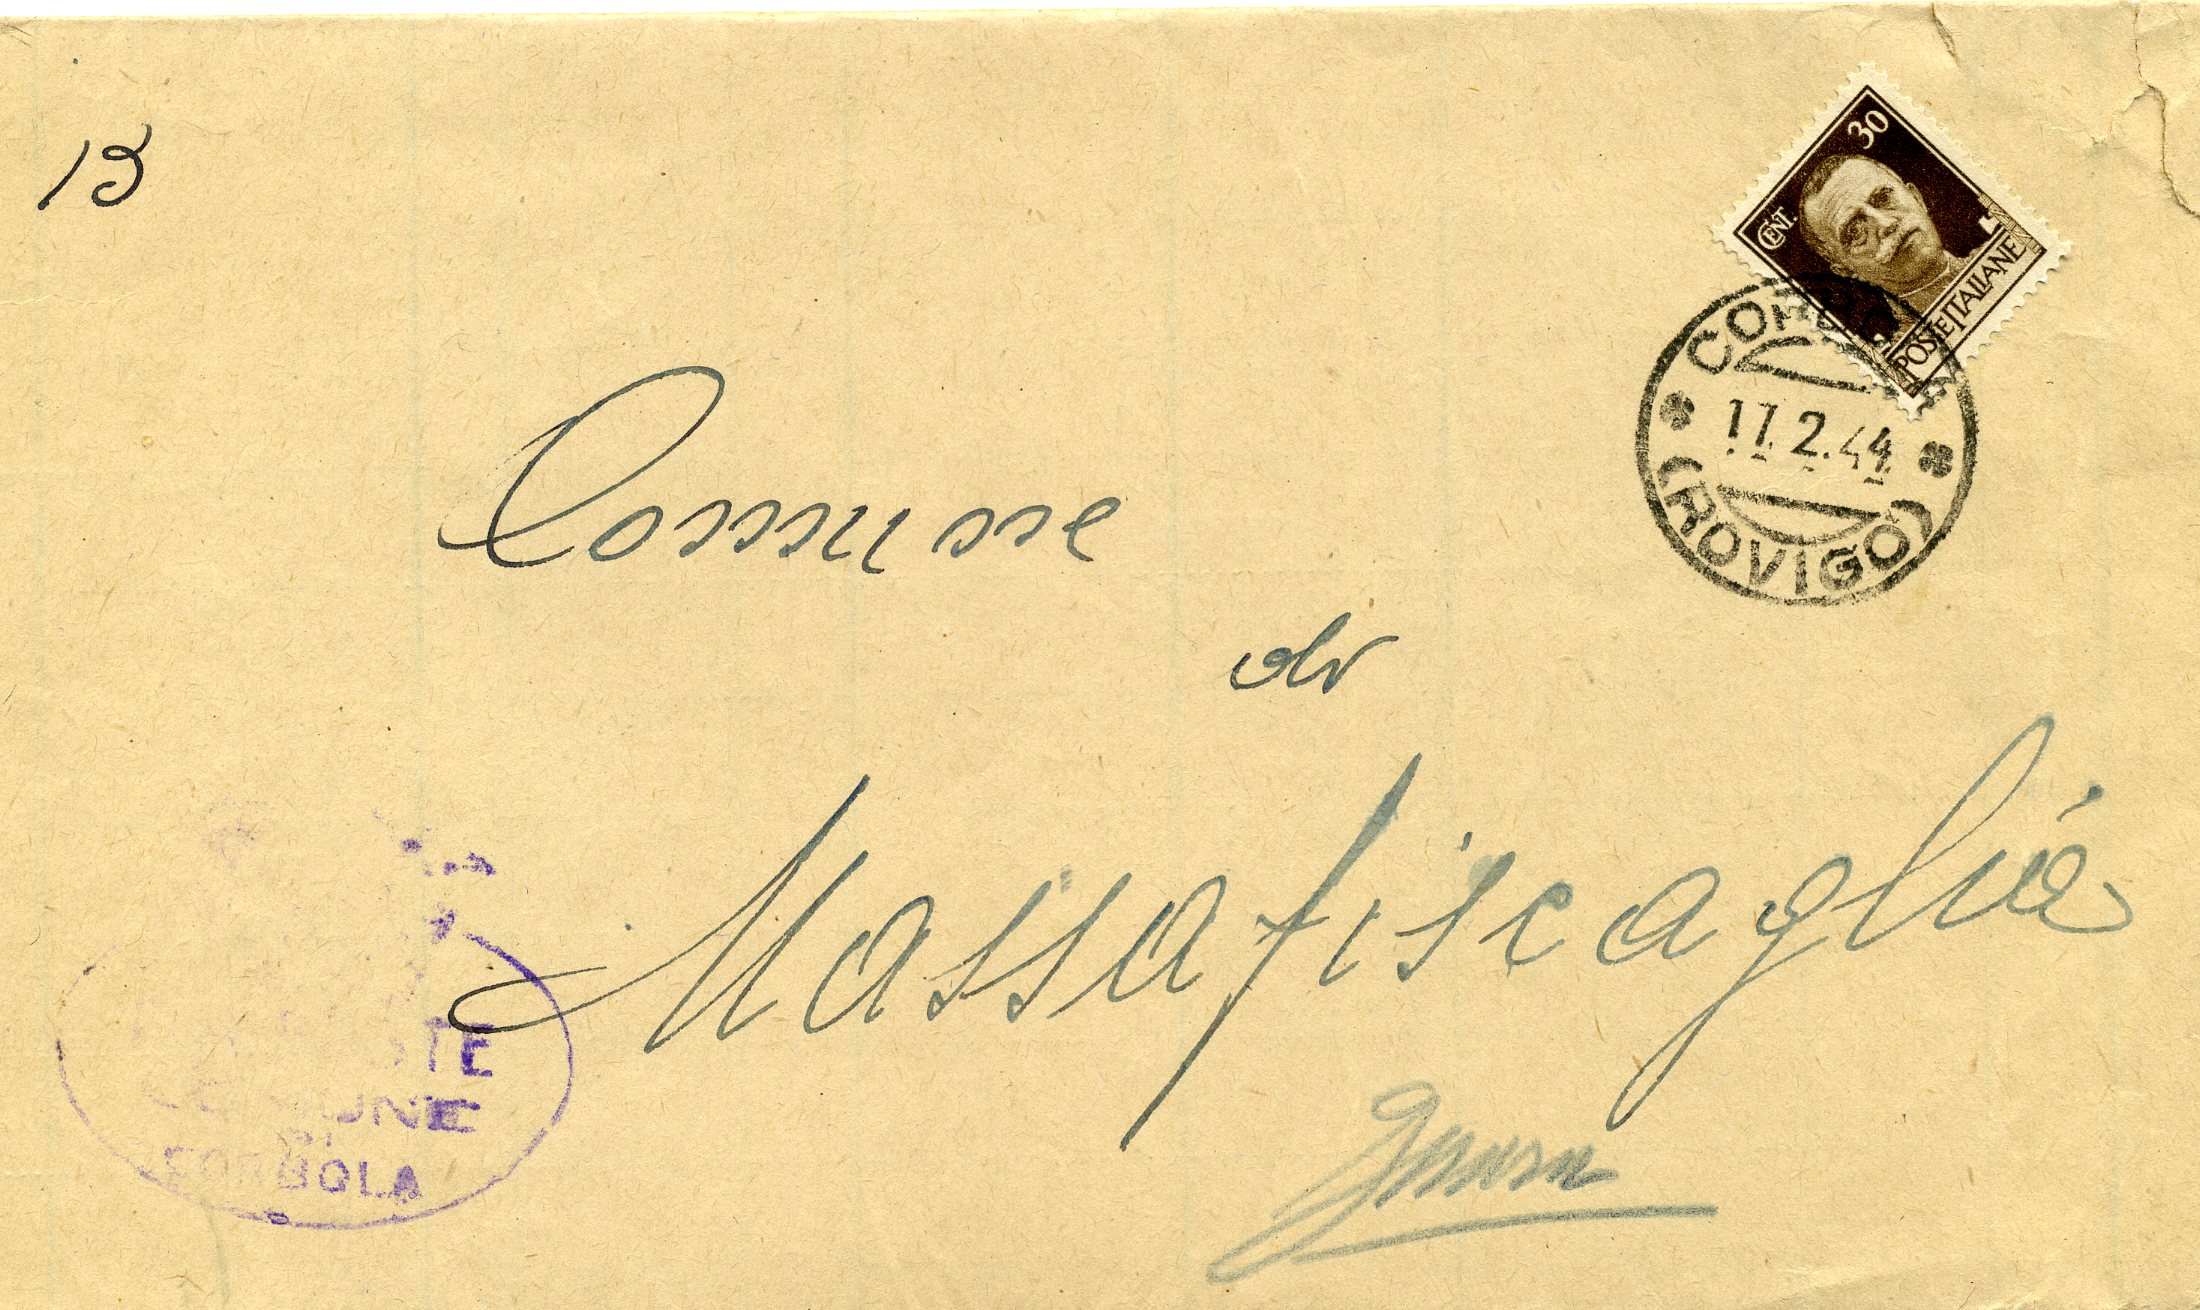 13
30
CENT.
POSTE ITALIANE
CORBOLA
17.2.44
(ROVIGO)
Comune
di
Massafiscaglia
COMUNE
DI
CORBOLA